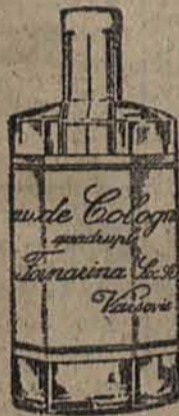 au de Cologn
quadrupl
Fornarina
Varsovie